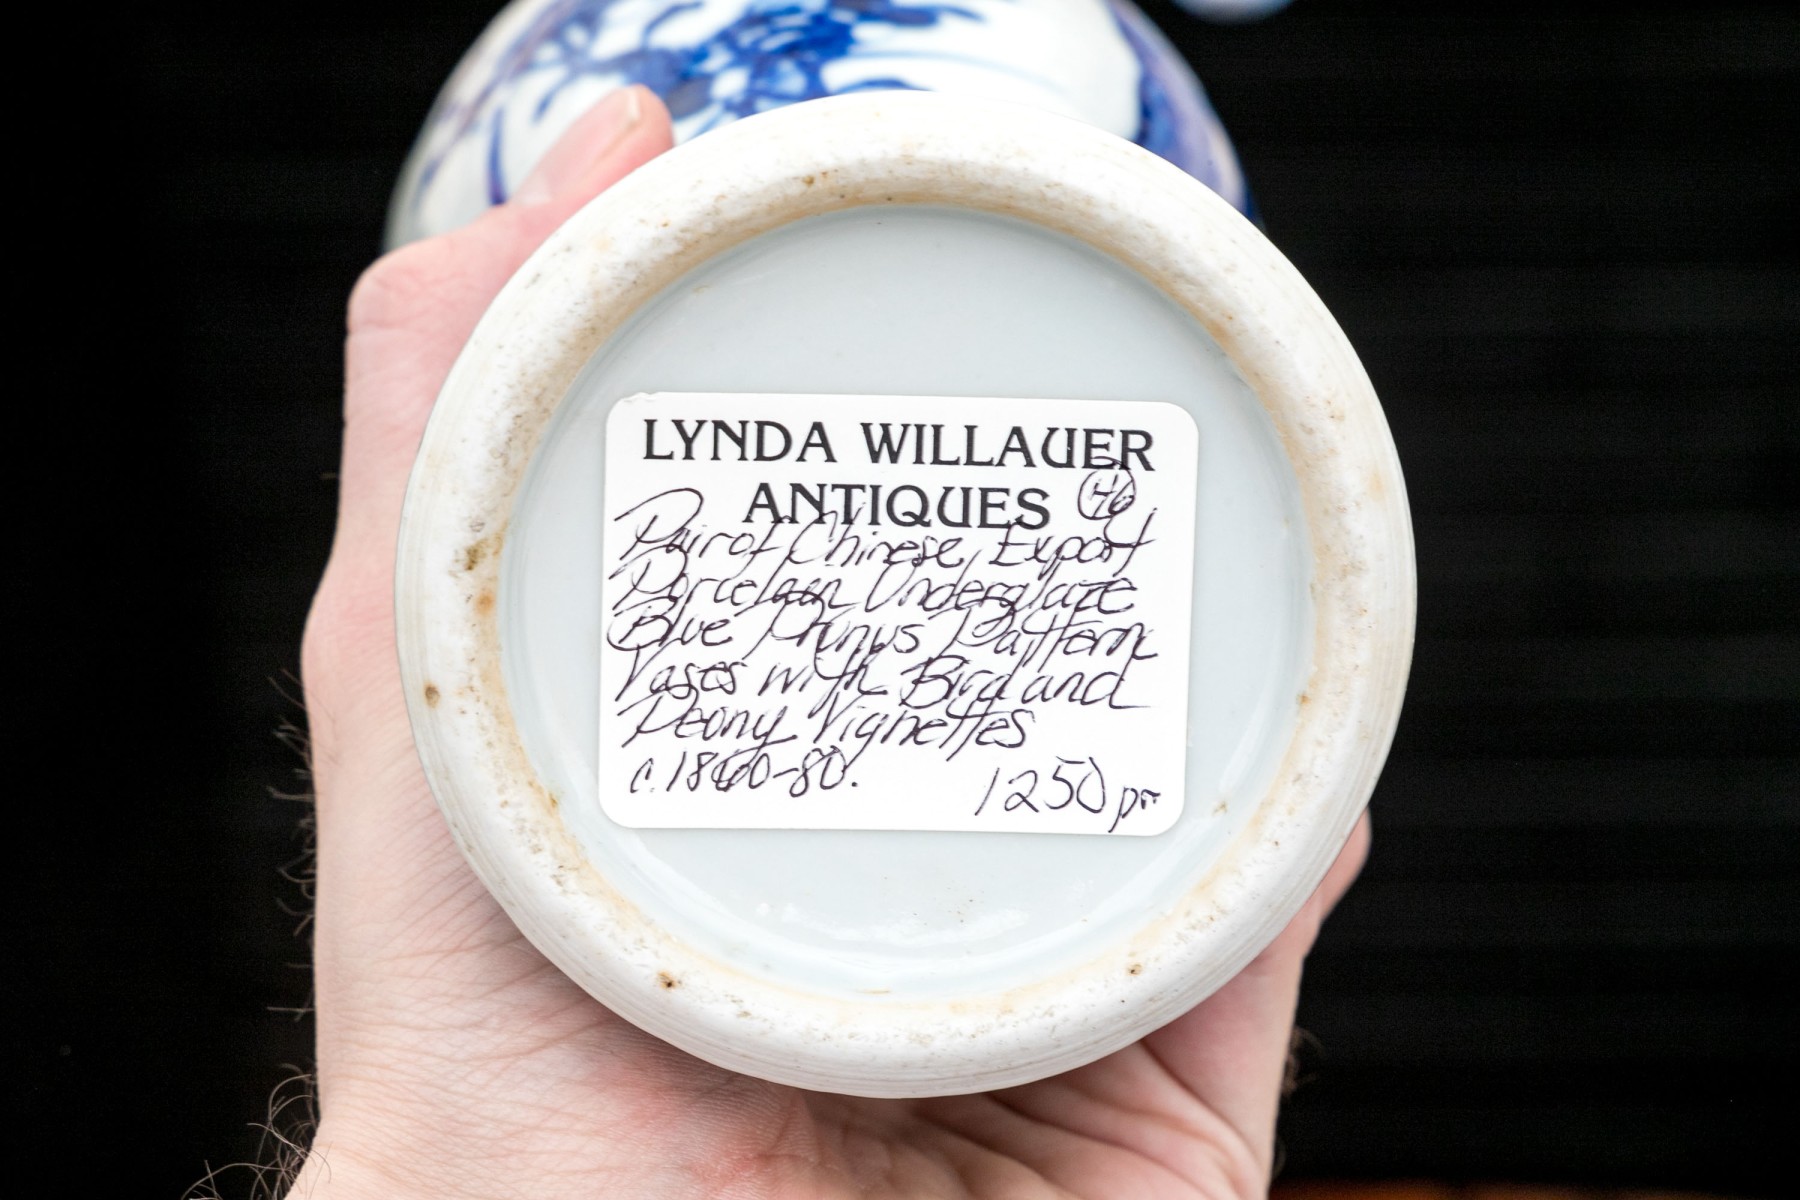 LYNDA WILLAUER
ANTIQUES
Pair of Chinese Export
Porcelain Underglaze
Blue Prunus Pattern
Vases with Bird and
Peony Vignettes
c. 1860-80. 1250 pr